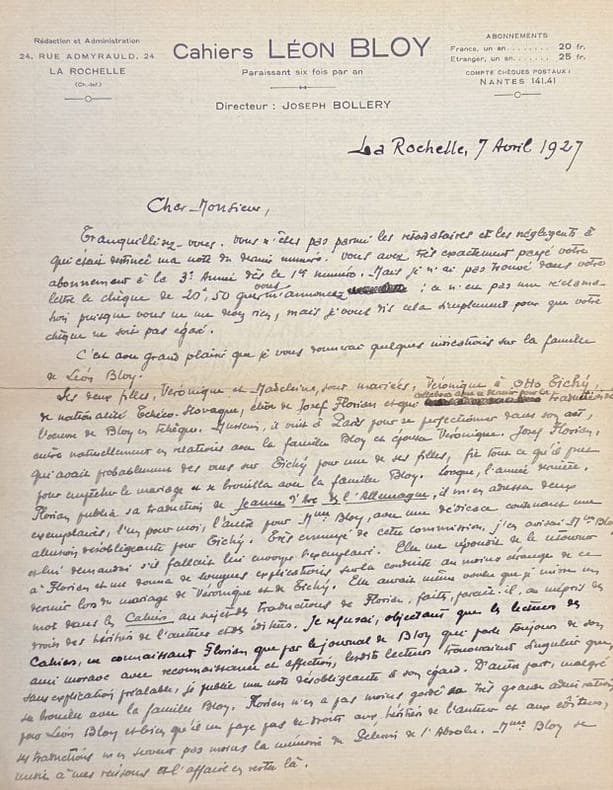 Rédaction et Administration
24, RUE ADMYRAULD, 24
LA ROCHELLE
(Ch.-Inf.)
Cahiers LÉON BLOY
Paraissant six fois par an
Directeur : JOSEPH BOLLERY
ABONNEMENTS
France, un an........ 20 fr.
Etranger, un an...... 25 fr.
COMPTE CHÈQUES POSTAUX :
NANTES 141.41
La Rochelle, 7 Avril 1927
Cher Monsieur,
Tranquillisez-vous. Vous n'êtes pas parmi les retardataires et les négligents à
qui était destinée ma note du dernier numéro. Vous avez très exactement payé votre
abonnement à la 3e Année dès le 1er numéro. Mais je n'ai pas trouvé dans votre
lettre le chèque de 20f,50 que vous m'annoncez ; ce n'est pas une réclama-
tion puisque vous ne me devez rien, mais je vous dis cela simplement pour que votre
chèque ne soit pas égaré.
C'est avec grand plaisir que je vous donnerai quelques indications sur la famille
de Léon Bloy.
Ses deux filles, Véronique et Madeleine, sont mariées, Véronique à Otto Tichý,
de nationalité Tchéco-Slovaque, élève de Josef Florian et qui collabora avec ce dernier pour la traduction de
l'œuvre de Bloy en tchèque. Musicien, il vint à Paris pour se perfectionner dans son art,
entra naturellement en relations avec la famille Bloy et épousa Véronique. Josef Florian,
qui avait probablement des vues sur Tichý pour une de ses filles, fit tout ce qu'il put
pour empêcher le mariage et se brouilla avec la famille Bloy. Lorsque, l'année dernière,
Florian publia sa traduction de Jeanne d'Arc et l'Allemagne, il m'en adressa deux
exemplaires, l'un pour moi, l'autre pour Mme Bloy, avec une dédicace contenant une
allusion désobligeante pour Tichý. Très ennuyé de cette commission, j'en avisai Mme Bloy
et lui demandai s'il fallait lui envoyer l'exemplaire. Elle me répondit de le retourner
à Florian et me donna de longues explications sur la conduite au moins étrange de ce
dernier lors du mariage de Véronique et de Tichý. Elle aurait même voulu que je misse un
mot dans les Cahiers au sujet des traductions de Florian, faites, paraît-il, au mépris des
droits des héritiers de l'auteur et des éditeurs. Je refusai, objectant que les lecteurs des
Cahiers, ne connaissant Florian que par le journal de Bloy qui parle toujours de son
ami morave avec reconnaissance et affection, lesdits lecteurs trouveraient singulier que,
sans explication préalable, je publie une note désobligeante à son égard. D'autre part, malgré
sa brouille avec la famille Bloy, Florian n'en a pas moins gardé sa très grande admiration
pour Léon Bloy et bien qu'il ne paye pas de droits aux héritiers de l'auteur et aux éditeurs,
ses traductions n'en servent pas moins la mémoire du Pèlerin de l'Absolu. Mme Bloy se
rendit à mes raisons et l'affaire en resta là.